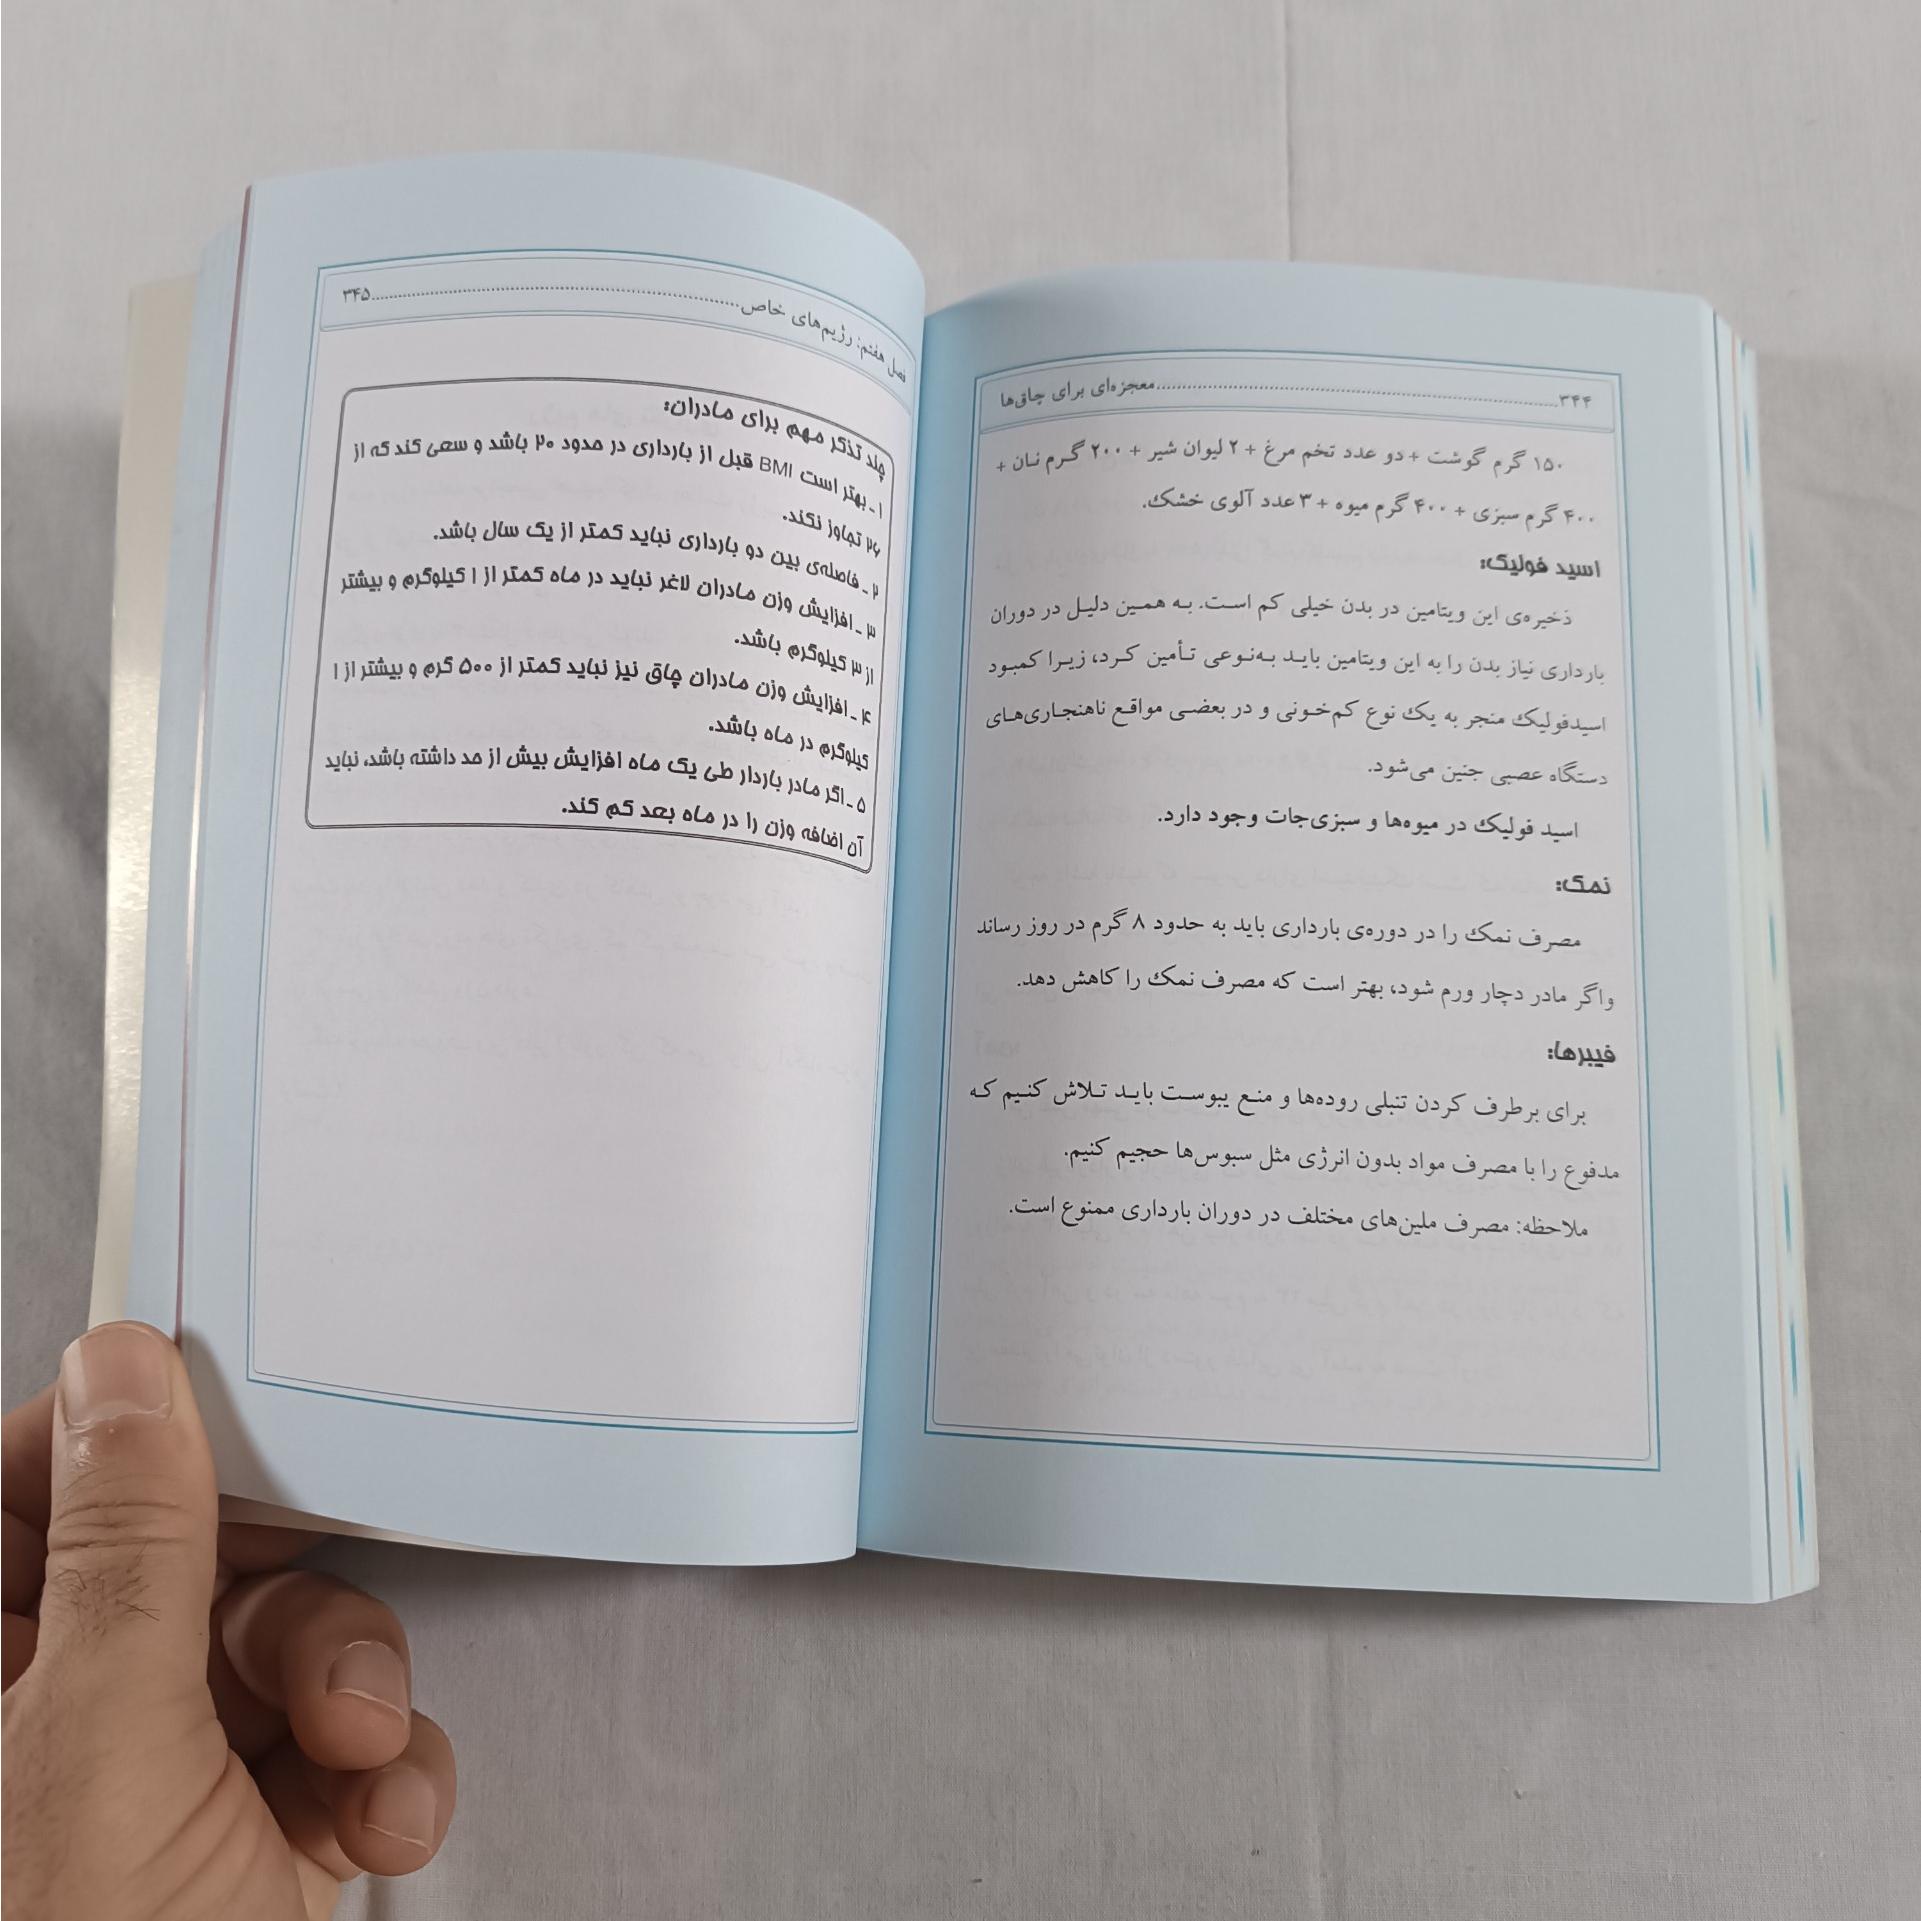 ۳۴۴........................................معجزه‌ای برای چاق‌ها
۱۵۰ گرم گوشت + دو عدد تخم مرغ + ۲ لیوان شیر + ۲۰۰ گرم نان +
۴۰۰ گرم سبزی + ۴۰۰ گرم میوه + ۳ عدد آلوی خشک.
اسید فولیک:
ذخیره‌ی این ویتامین در بدن خیلی کم است. به همین دلیل در دوران
بارداری نیاز بدن را به این ویتامین باید به‌نوعی تأمین کرد، زیرا کمبود
اسیدفولیک منجر به یک نوع کم‌خونی و در بعضی مواقع ناهنجاری‌های
دستگاه عصبی جنین می‌شود.
اسید فولیک در میوه‌ها و سبزی‌جات وجود دارد.
نمک:
مصرف نمک را در دوره‌ی بارداری باید به حدود ۸ گرم در روز رساند
واگر مادر دچار ورم شود، بهتر است که مصرف نمک را کاهش دهد.
فیبرها:
برای برطرف کردن تنبلی روده‌ها و منع یبوست باید تلاش کنیم که
مدفوع را با مصرف مواد بدون انرژی مثل سبوس‌ها حجیم کنیم.
ملاحظه: مصرف ملین‌های مختلف در دوران بارداری ممنوع است.
فصل هفتم: رژیم‌های خاص........................................۳۴۵
چند تذکر مهم برای مادران:
۱ـ بهتر است BMI قبل از بارداری در حدود ۲۰ باشد و سعی کند که از
۲۶ تجاوز نکند.
۲ـ فاصله‌ی بین دو بارداری نباید کمتر از یک سال باشد.
۳ـ افزایش وزن مادران لاغر نباید در ماه کمتر از ۱ کیلوگرم و بیشتر
از ۳ کیلوگرم باشد.
۴ـ افزایش وزن مادران چاق نیز نباید کمتر از ۵۰۰ گرم و بیشتر از ۱
کیلوگرم در ماه باشد.
۵ـ اگر مادر باردار طی یک ماه افزایش بیش از حد داشته باشد، نباید
آن اضافه وزن را در ماه بعد کم کند.